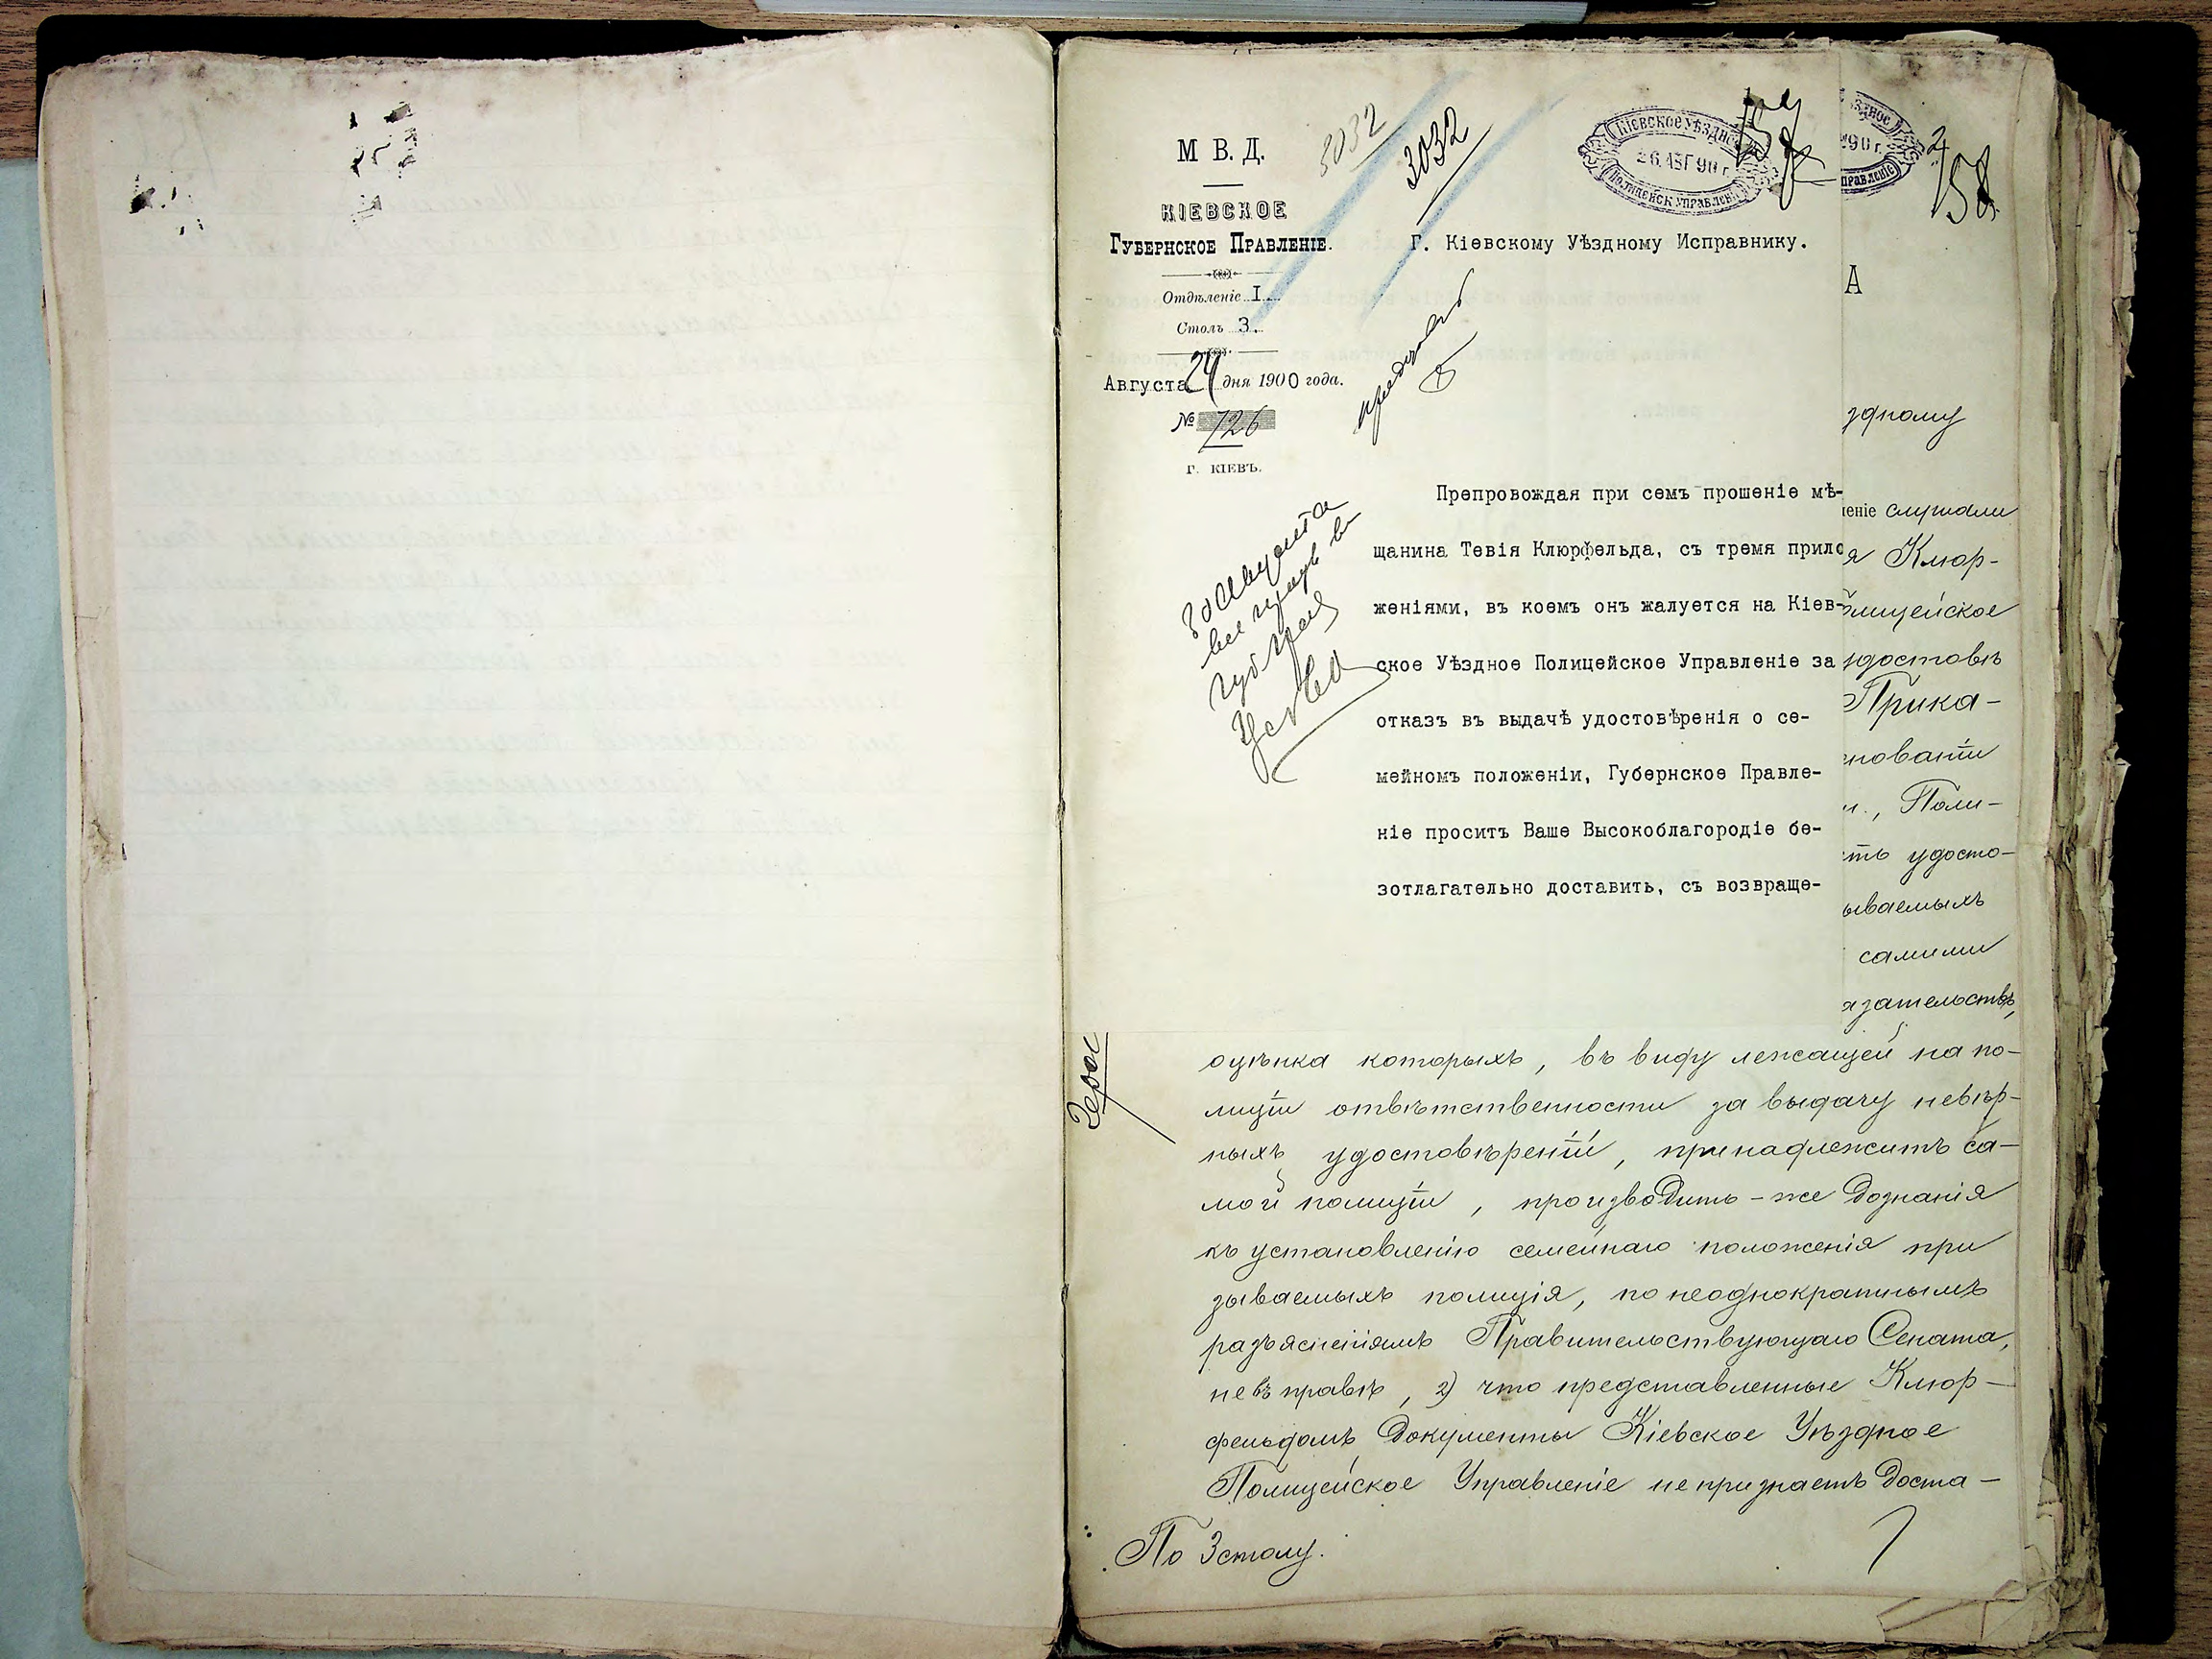 М В. Д.
КІЕВСКОЕ
ГУБЕРНСКОЕ ПРАВЛЕНІЕ.
Отдѣленіе I.
Столъ 3.
Августа 24 дня 1900 года.
№ 726
Г. КІЕВЪ.
3032
3032
КІЕВСКОЕ УѢЗДНО
26. АВГ 90 г.
ПОЛИЦЕЙСК УПРАВЛЕНІ
157
Г. Кіевскому Уѣздному Исправнику.
Препровождая при семъ прошеніе мѣ-
щанина Тевія Клюрфельда, съ тремя прило
женіями, въ коемъ онъ жалуется на Кіев-
ское Уѣздное Полицейское Управленіе за
отказъ въ выдачѣ удостовѣренія о се-
мейномъ положеніи, Губернское Правле-
ніе проситъ Ваше Высокоблагородіе бе-
зотлагательно доставить, съ возвраще-
ѣздное
90 г.
правленіе
158
А
здному
леніе слушали
я Клюр-
олицейское
удостовѣ
Прика-
снованіи
л., Поли-
сть удосто-
ываемыхъ
самими
азательствъ,
оцѣнка которыхъ, въ виду лежащей на по-
лиціи отвѣтственности за выдачу невѣр-
ныхъ удостовѣреній, принадлежитъ са-
мой полиціи, производить-же дознанія
къ установленію семейнаго положенія при
зываемыхъ полиція, по неоднократнымъ
разъясненіямъ Правительствующаго Сената,
не въ правѣ, 2) что представленные Клюр-
фельдомъ документы Кіевское Уѣздное
Полицейское Управленіе не признаетъ доста-
По 3 столу.